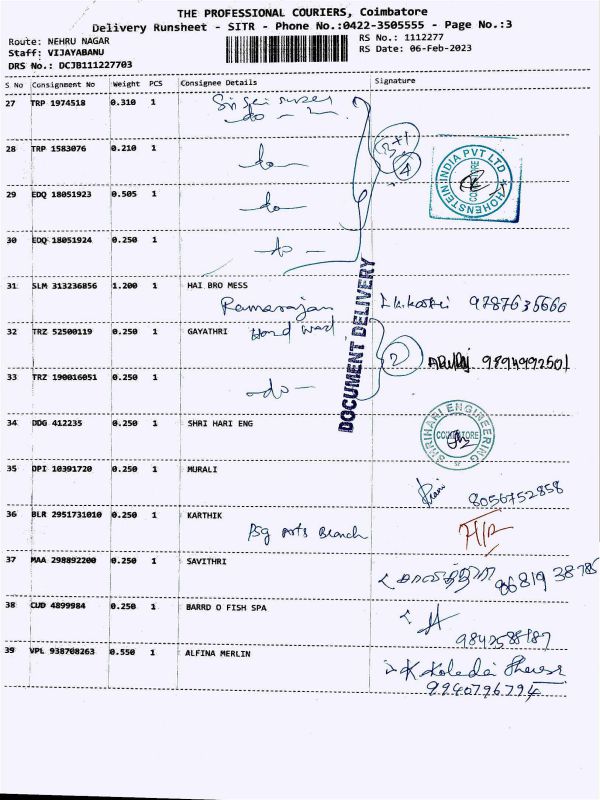 THE PROFESSIONAL COURIERS, Coimbatore
Delivery Runsheet - SITR - Phone No.:0422-3505555 - Page No.:3
Route: NEHRU NAGAR RS No.: 1112277
Staff: VIJAYABANU RS Date: 06-Feb-2023
DRS No.: DCJB111227703
S No Consignment No Weight PCS Consignee Details Signature
27 TRP 1974518 0.310 1
do
28 TRP 1583076 0.210 1 do
3+1
4
HOHENSTEIN INDIA PVT LTD
COIMBATORE
29 EDQ 18051923 0.505 1 do
30 EDQ 18051924 0.250 1 do
31 SLM 313236856 1.200 1 HAI BRO MESS
Ramarajan 9787636660
DOCUMENT DELIVERY
32 TRZ 52500119 0.250 1 GAYATHRI
2 9894992501
33 TRZ 190016051 0.250 1 do
34 DDG 412235 0.250 1 SHRI HARI ENG
SHRIHARI ENGINEERING
COIMBATORE
35 DPI 10391720 0.250 1 MURALI
8056752858
36 BLR 2951731010 0.250 1 KARTHIK
Psg Arts Branch
37 MAA 298892200 0.250 1 SAVITHRI
38 CUD 4899984 0.250 1 BARRD O FISH SPA
39 VPL 938708263 0.550 1 ALFINA MERLIN
9940796794